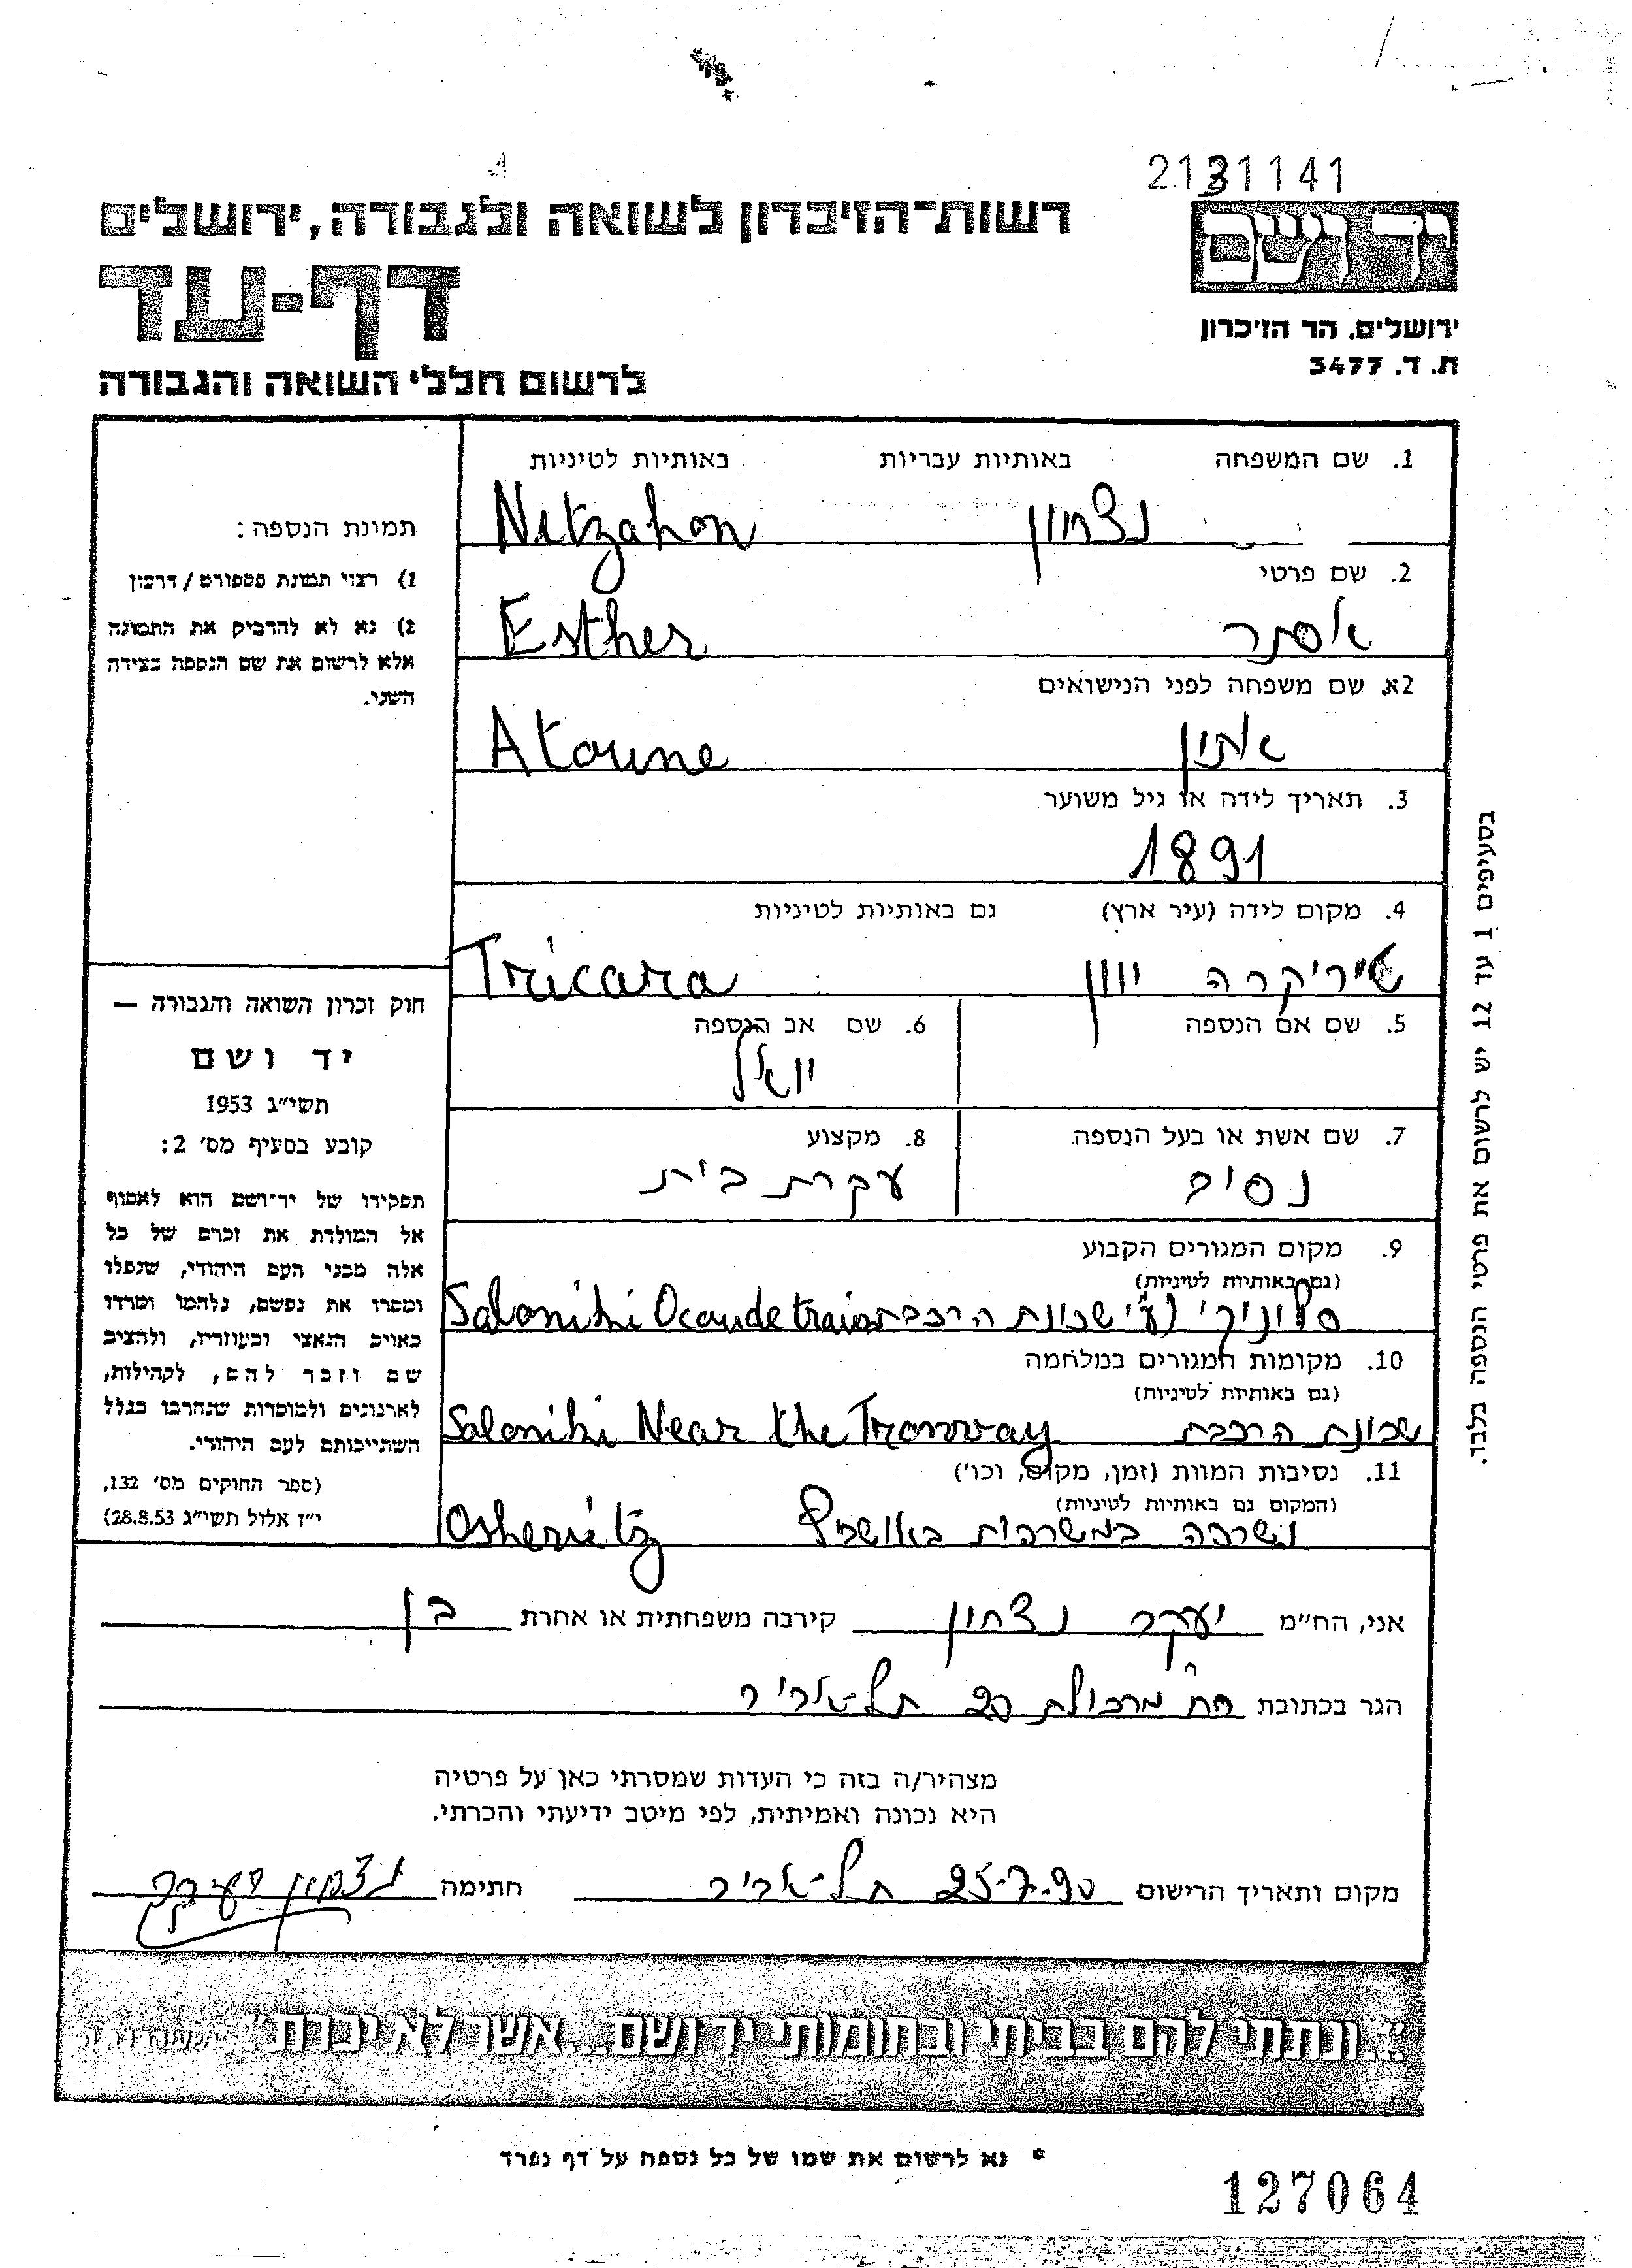 2131141
יד ושם
רשות-הזיכרון לשואה ולגבורה, ירושלים
דף-עד
ירושלים. הר הזיכרון
ת. ד. 3477
לרשום חללי השואה והגבורה
1. שם המשפחה באותיות עבריות באותיות לטיניות
נצחון Nitzahon
2. שם פרטי
אסתר Esther
2א. שם משפחה לפני הנישואים
אתון Atoune
3. תאריך לידה או גיל משוער
1891
4. מקום לידה (עיר ארץ) גם באותיות לטיניות
טיריקרה יוון Tricara
5. שם אם הנספה 6. שם אב הנספה
יואל
7. שם אשת או בעל הנספה 8. מקצוע
נסים עקרת בית
9. מקום המגורים הקבוע
(גם באותיות לטיניות)
סלוניקי שכונת הרכבת Saloniki
10. מקומות המגורים במלחמה
(גם באותיות לטיניות)
שכונת הרכבת Saloniki Near the Tramway
11. נסיבות המוות (זמן, מקום, וכו')
(המקום גם באותיות לטיניות)
נשרפה במשרפות באושביץ Oshevitz
תמונת הנספה:
1) רצוי תמונת פספורט / דרכון
2) נא לא להדביק את התמונה
אלא לרשום את שם הנספה בצידה
השני.
חוק זכרון השואה והגבורה —
יד ושם
תשי"ג 1953
קובע בסעיף מס' 2:
תפקידו של יד-ושם הוא לאסוף
אל המולדת את זכרם של כל
אלה מבני העם היהודי, שנפלו
ומסרו את נפשם, נלחמו ומרדו
באויב הנאצי ובעוזריו, ולהציב
שם וזכר להם, לקהילות,
לארגונים ולמוסדות שנחרבו בגלל
השתייכותם לעם היהודי.
(ספר החוקים מס' 132,
י"ז אלול תשי"ג 28.8.53)
בסעיפים 1 עד 12 יש לרשום את פרטי הנספה בלבד.
אני, הח"מ יעקב נצחון קירבה משפחתית או אחרת בן
הגר בכתובת רח' מרכולת 20 תל-אביב
מצהיר/ה בזה כי העדות שמסרתי כאן על פרטיה
היא נכונה ואמיתית, לפי מיטב ידיעתי והכרתי.
מקום ותאריך הרישום 25.7.90 תל-אביב חתימה נצחון יעקב
"...ונתתי להם בביתי ובחומותי יד ושם... אשר לא יכרת"
* נא לרשום את שמו של כל נספה על דף נפרד
127064